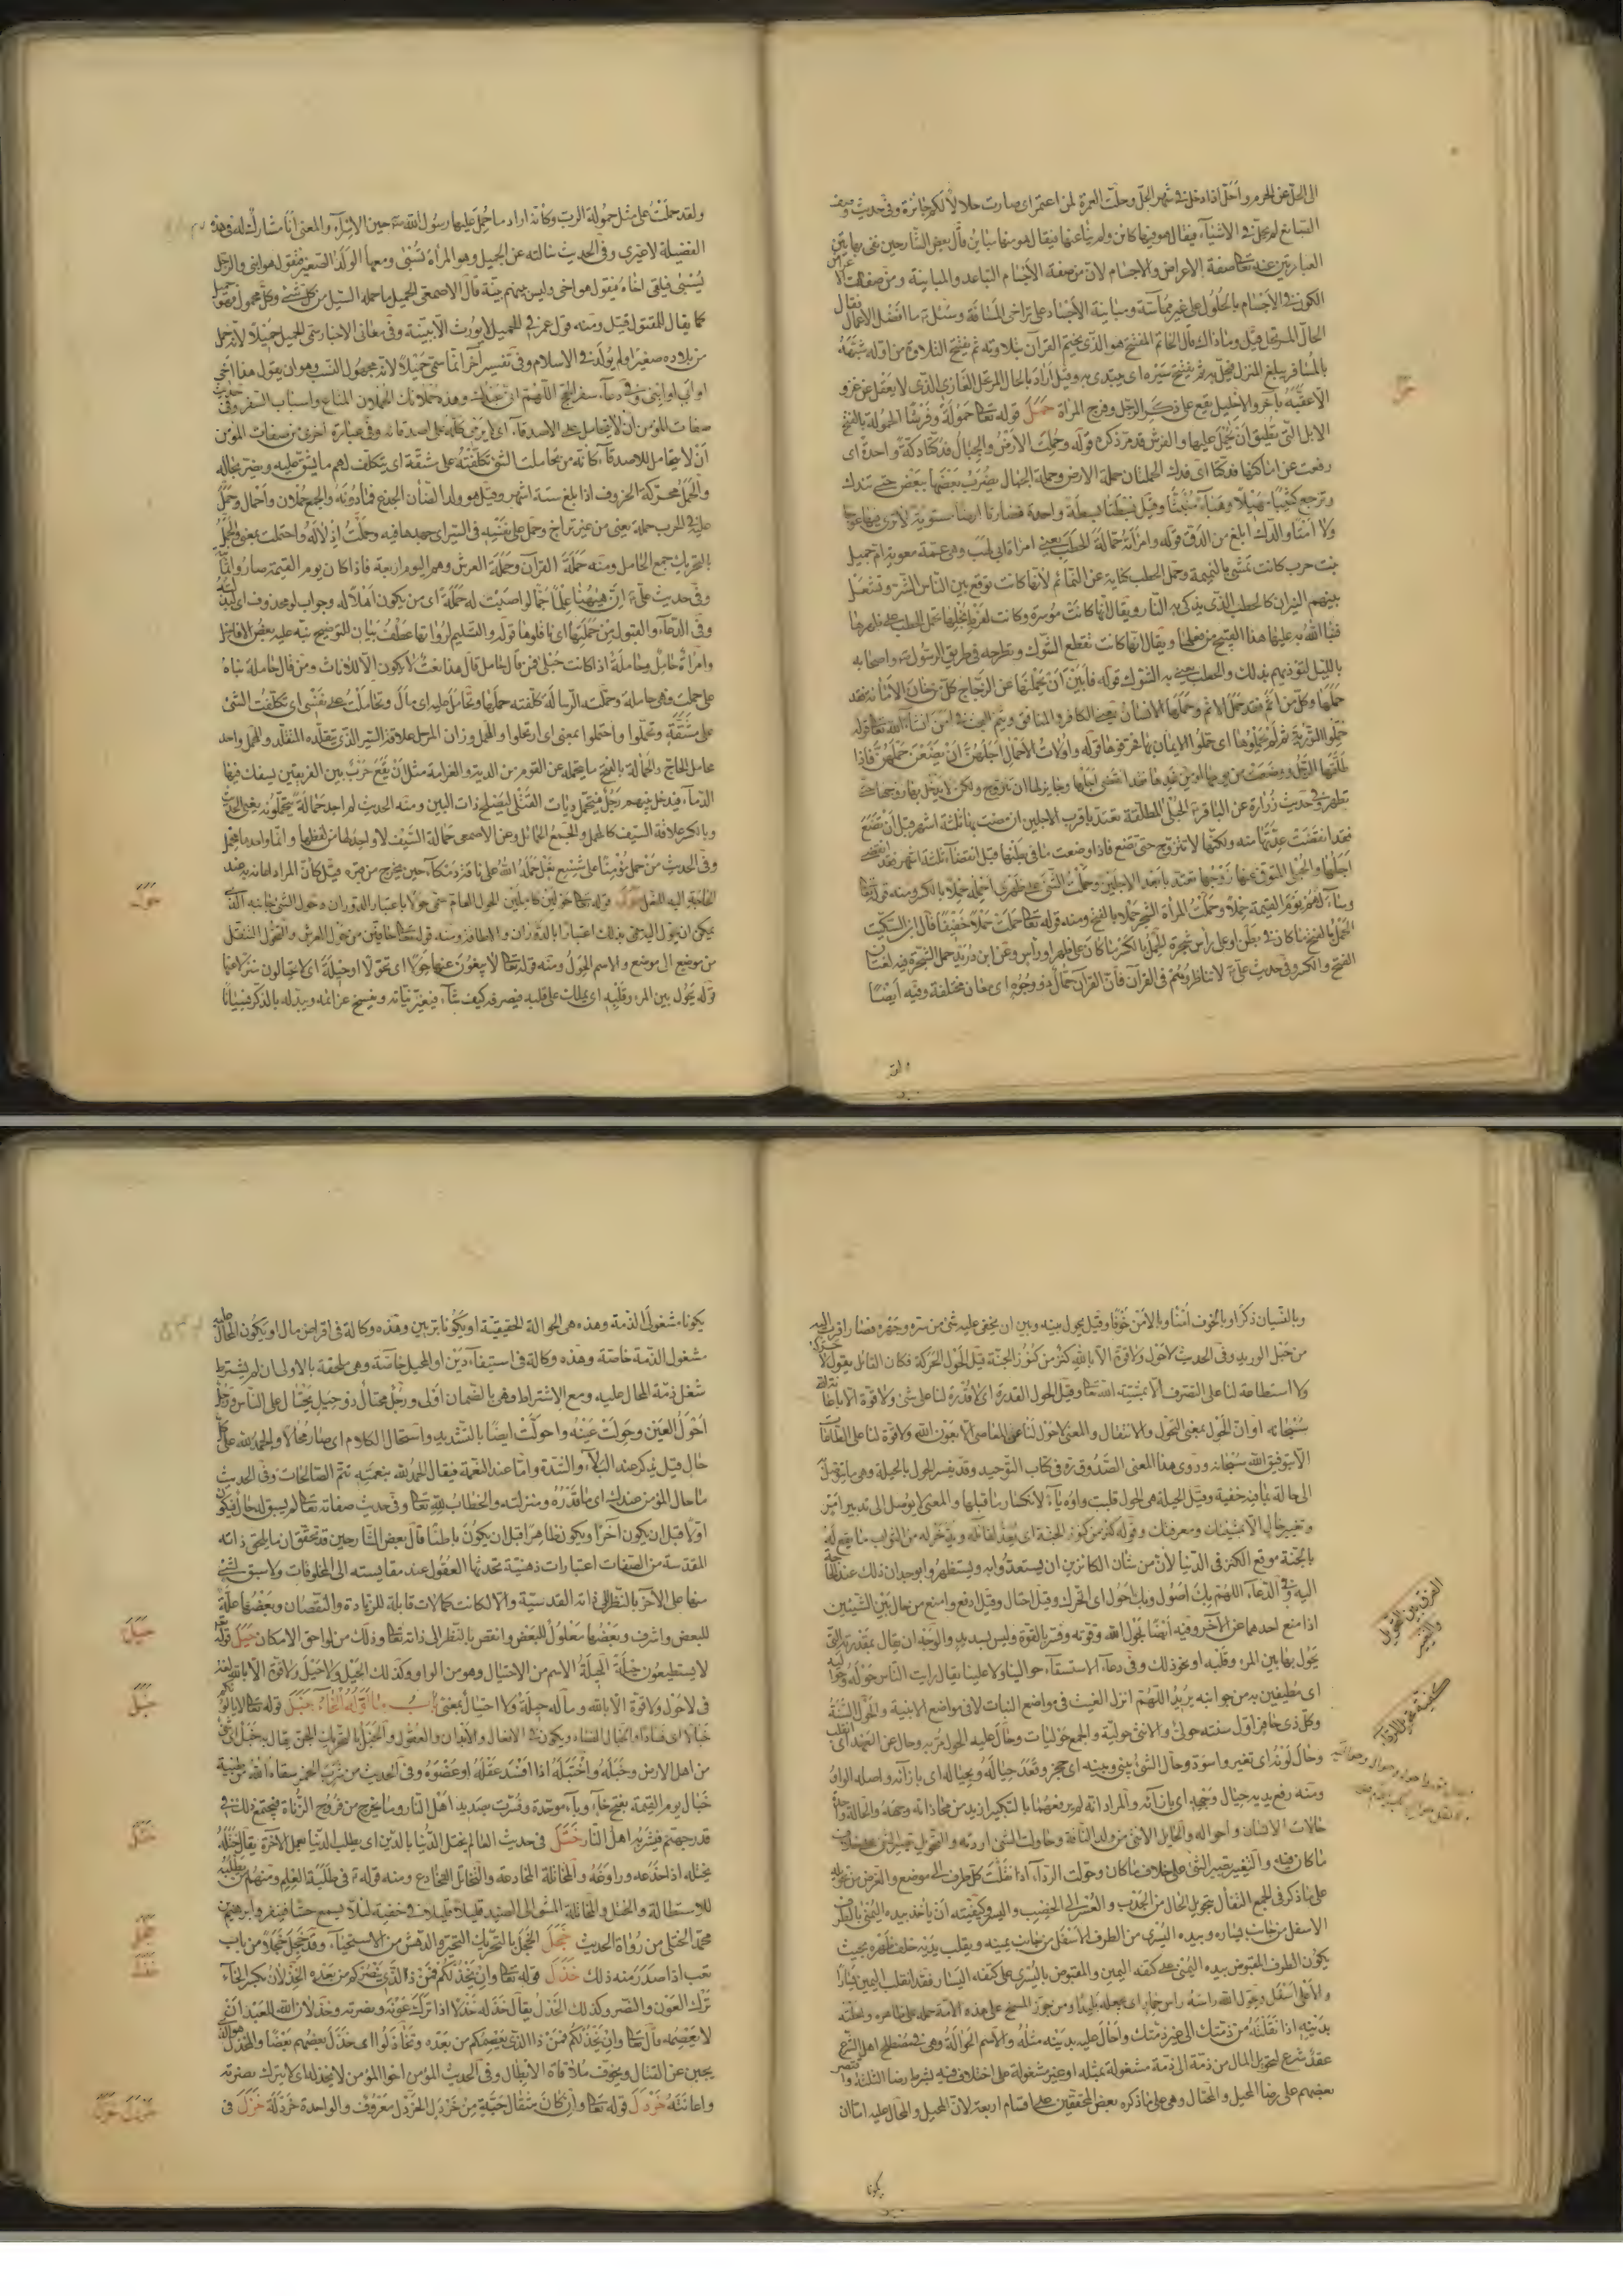 الى الحل عن الحرم واحل اذا دخل في شهر الحل وحلت العمرة لمن اعتمر اى صارت حلالا لكم جائزة وفى حديث وصف
الصانع لم يحلل في الاشياء فيقال هو فيها كائن ولم ينأ عنها فيقال هو منها مباين قال بعض الشارحين نفى بهاتين
العبارتين عنه تعالى صفة الاعراض والاجسام لان من صفة الاجسام التباعد والمباينة ومن صفة الاعراض
الكون في الاجسام بالحلول على غير مماسة ومباينة الأجساد على تراخى المسافة وسئل ع ما افضل الاعمال فقال
الحال المرتحل قيل وما ذاك قال الخاتم المفتتح هو الذى يختم القرآن بتلاوته ثم يفتتح التلاوة من اوله شبهه
بالمسافر يبلغ المنزل فيحل به ثم يفتتح سيره اى يبتدئ به وقيل أراد بالحال المرتحل الغازى الذى لا يغفل عن غزو
الا عقبه بآخر والاحليل يقع على ذكر الرجل وفرج المرأة حمل قوله تعالى حمولة وفرشا الحمولة بالفتح
الابل التى تطيق أن يحمل عليها والفرش قد مر ذكره قوله وحملت الأرض والجبال فدكتا دكة واحدة اى
رفعت عن اماكنها فدكتا اى فدك الجملتان جملة الارض وجملة الجبال يضرب بعضها ببعض حتى تندك
وترجع كثيبا مهيلا وهباء منبثا وقيل فبسطتا بسطة واحدة فصارتا ارضا مستوية لا ترى فيها عوجا
ولا أمتا والدك ابلغ من الدق قوله وامرأته حمالة الحطب يعنى امرأة ابى لهب وهى عمة معوية ام جميل
بنت حرب كانت تمشى بالنميمة وحمل الحطب كناية عن النمائم لأنها كانت توقع بين الناس الشر وتشعل
بينهم النيران كالحطب الذى يذكى به النار ويقال انها كانت موسرة وكانت لفرط بخلها تحمل الحطب على ظهرها
فنبأ الله به عليها هذا القبيح من فعلها ويقال انها كانت تقطع الشوك وتطرحه في طريق الرسول ص واصحابه
بالليل لتؤذيهم بذلك والحطب يعنى به الشوك قوله فأبين أن يحملنها عن الزجاج كل من خان الامانة فقد
حملها وكل من اثم فقد حمل الاثم وحملها الانسان يعنى الكافر والمنافق ويتم البحث في امن ان شاء الله تعالى قوله
حملوا التورية ثم لم يحملوها اى حملوا الايمان بها فحرفوها قوله واولات الأحمال أجلهن أن يضعن حملهن فإذا
طلقها الرجل ووضعت من يومها او من غدها فقد انقضى أجلها وجايز لها ان تتزوج ولكن لا يدخل بها زوجها حتى
تطهر وفى حديث زرارة عن الباقر ع الحبلى المطلقة تعتد بأقرب الاجلين ان مضت بها ثلثة اشهر قبل أن تضع
فقد انقضت عدتها منه ولكنها لا تتزوج حتى تضع فاذا وضعت ما في بطنها قبل انقضاء ثلثة اشهر فقد انقضى
اجلها والحبلى المتوفى عنها زوجها تعتد بأبعد الاجلين وحملت الشئ على ظهرى أحمله حملا بالكسر ومنه قوله تعالى
وساء لهم يوم القيمة حملا وحملت المرأة والشجر حملا بالفتح ومنه قوله تعالى حملت حملا خفيفا قال ابن السكيت
الحمل بالفتح ما كان في بطن او على رأس شجرة والحمل بالكسر ما كان على ظهر او رأس وعن ابن دريد حمل الشجرة فيه لغتان
الفتح والكسر وفى حديث على ع لا تناظروهم فى القرآن فان القرآن حمال ذو وجوه اى معان مختلفة وفيه أيضا
حمل
ولقد
ولقد حملت على مثل حمولة الرب وكأنه اراد ما حمل عليها رسول الله ص حين الإسراء والمعنى أنا مشارك له في هذه
الفضيلة لا غيرى وفى الحديث سألته عن الحميل وهو المرأة تسبى ومعها الولد الصغير فتقول هو ابنى والرجل
يسبى فيلقى اخاه فيقول هو اخى وليس بينهم بينة قال الاصمعى الحميل ما حمله السيل من كل شئ وكل محمول فهو حميل
كما يقال للمقتول قتيل ومنه قول عمر في الحميل لا يورث الا ببينة وفى معانى الاخبار سمى الحميل حميلا لأنه حمل
من بلاده صغيرا ولم يولد في الاسلام وفى تفسير آخر انما سمى حميلا لأنه مجهول النسب وهو ان يقول هذا أخى
او أبى او ابنى وفى دعاء سفر الحج اللهم انى عبدك وهذه حملانك الحملان المتاع واسباب السفر وفى حديث
صفات المؤمن أن لا يتحامل على الاصدقاء اى لا يرمى كله على اصدقائه وفى عبارة اخرى من صفات المؤمن
أن لا يتحامل للاصدقاء كأنه من تحاملت الشئ تكلفته على مشقة اى يتكلف لهم ما يشق عليه ويضر بحاله
والحمل محركة الخروف اذا بلغ ستة اشهر وقيل هو ولد الضأن الجذع فما دونه والجمع حملان وأحمال وحمل
عليه في الحرب حملة يعنى من غير تراخ وحمل على نفسه فى السير اى جهدها فيه وحملت إدلاله واحتملت بمعنى والحملة
بالتحريك جمع الحامل ومنه حملة القرآن وحملة العرش وهم اليوم اربعة فاذا كان يوم القيمة صاروا ثمانية
وفى حديث على ع إن هيهنا علما جما لو اصبت له حملة اى من يكون أهلا له وجواب لو محذوف اى لبذلته
وفى الدعاء والقبول من حملتها اى ناقلوها قوله والتسليم لرواتها عطف بيان للتوضيح نبه عليه بعض الافاضل
وامرأة حامل وحاملة اذا كانت حبلى فمن قال حامل قال هذا نعت لا يكون الا للاناث ومن قال حاملة بناه
على حملت فهى حاملة وحملته الرسالة كلفته حملها وتحامل عليه اى مال وتحاملت على نفسى اى تكلفت الشئ
على مشقة وتحملوا واحتملوا بمعنى اى ارتحلوا والمحمل وزان المرسل علاقة السير الذى يتقلده المتقلد والمحمل واحد
محامل الحاج والحمالة بالفتح ما يتحمله عن القوم من الدية والغرامة مثل أن يقع حرب بين الفريقين يسفك فيها
الدماء فيدخل بينهم رجل فيتحمل ديات القتلى ليصلح ذات البين ومنه الحديث لم اجد حمالة يتحملونه بغير الحديث
وبالكسر علاقة السيف كالمحمل والجمع الحمائل وعن الاصمعى حمائل السيف لا واحد لها من لفظها وانما واحدها محمل
وفى الحديث من حمل مؤمنا على شسع نعل حمله الله على ناقة دمكاء حين يخرج من قبره قيل كان المراد اعانه به عند
الحاجة اليه النعل حول قوله تعالى حولين كاملين الحول العام سمى حولا باعتبار الدوران وحول الشئ جانبه الذى
يمكن ان يحول اليه سمى بذلك اعتبارا بالدوران والاطافة ومنه قوله تعالى حافين من حول العرش والتحول التنقل
من موضع الى موضع والاسم الحول ومنه قوله تعالى لا يبغون عنها حولا اى تحولا او حيلة اى لا يحتالون منزلا عنها
قوله يحول بين المرء وقلبه اى يملك على قلبه فيصرفه كيف شاء فيغير نياته ويفسخ عزائمه ويبدله بالذكر نسيانا
حول
وبالنسيان ذكرا وبالخوف أمنا وبالأمن خوفا وقيل يحول بينه وبين ان يخفى عليه شئ من سره وجهره فصار اقرب اليه
من حبل الوريد وفى الحديث لا حول ولا قوة الا بالله كنز من كنوز الجنة قيل الحول الحركة فكان القائل يقول لا حركة
ولا استطاعة لنا على التصرف الا بمشية الله تعالى وقيل الحول القدرة اى لا قدرة لنا على شئ ولا قوة الا باعانة الله
سبحانه او ان الحول بمعنى التحول والانتقال والمعنى لا حول لنا عن المعاصى الا بعون الله ولا قوة لنا على الطاعات
الا بتوفيق الله سبحانه وروى هذا المعنى الصدوق ره فى كتاب التوحيد وقد يفسر الحول بالحيلة وهى ما يتوصل به
الى حالة ما فيه خفية وقيل الحيلة هى الحول قلبت واوه ياء لانكسار ما قبلها والمعنى لا يوصل الى تدبير امر
وتغير حال الا بمشيتك ومعرفتك وقوله كنز من كنوز الجنة اى يعد لقائله ويدخر له من الثواب ما يقع له
بالجنة موقع الكنز فى الدنيا لأن من شأن الكانزين ان يستعدوا به ويستظهروا بوجدان ذلك عند الحاجة
اليه وفى الدعاء اللهم بك أصول وبك أحول اى اتحرك وقيل احتال وقيل ادفع وامنع من حال بين الشيئين
اذا منع احدهما عن الآخر وفيه أيضا بحول الله وقوته وفسر بالقوة وليس بسديد والوجه ان يقال بمقدرته التى
يحول بها بين المرء وقلبه او نحو ذلك وفى دعاء الاستسقاء حوالينا ولا علينا يقال رايت الناس حوله وحواليه
اى مطيفين به من جوانبه يريد اللهم انزل الغيث فى مواضع النبات لا فى مواضع الابنية والحول السنة
وكل ذى حافر اول سنته حولى والانثى حولية والجمع حوليات وحال عليه الحول مر به وحال عن العهد اى انقلب
وحال لونه اى تغير واسود وحال الشئ بينى وبينه اى حجز وقعد حياله وبحياله اى بازائه واصله الواو
ومنه رفع يديه حيال وجهه اى بازائه والمراد انه لم يرفعهما بالتكبير ازيد من محاذاته وجهه والحالة واحدة
حالات الانسان واحواله والحائل الانثى من ولد الناقة وحاولت الشئ اردته والتحويل تصيير الشئ على خلاف
ما كان فيه والتغيير تصيير الشئ على خلاف ما كان وحولت الرداء اذا نقلت كل طرف الى موضع والغرض من تحويله
على ما ذكر فى الجمع التفأل بتحويل الحال من الجدب والعسر الى الخصب واليسر وكيفيته أن يأخذ بيده اليمنى الطرف
الاسفل من جانب يساره وبيده اليسرى من الطرف الاسفل من جانب يمينه ويقلب يديه خلف ظهره بحيث
يكون الطرف المقبوض بيده اليمنى على كتفه اليمين والمقبوض باليسرى على كتفه اليسار فقد انقلب اليمين يسارا
والأعلى أسفل ويحول الله راسه راس حمار اى يجعله بليدا ومن جوز المسخ على هذه الامة حمله على ظاهره واحلته
بدينه اذا نقلته من ذمتك الى غير ذمتك وأحال عليه بدينه مثله والاسم الحوالة وهى فى مصطلح اهل الشرع
عقد شرع لتحويل المال من ذمة الى ذمة مشغولة بمثله او غير مشغولة على اختلاف فيه بشرط رضا الثلثة واقتصر
بعضهم على رضا المحيل والمحتال وهى على ما ذكره بعض المحققين على اقسام اربعة لأن المحيل والمحال عليه اما ان
الفرق بين التحويل والتغيير
كيفية تحويل الرداء
يكونا
يكونا مشغولى الذمة وهذه هى الحوالة الحقيقية او يكونا بريين وهذه وكالة فى اقراض مال او يكون المحال عليه
مشغول الذمة خاصة وهذه وكالة فى استيفاء دين او المحيل خاصة وهى ملحقة بالاولى ان لم يشترط
شغل ذمة المحال عليه ومع الاشتراط وهى بالضمان اولى ورجل محتال ذو حيل يحتال على الناس ورجل
أحول العين وحولت عينه واحولت ايضا بالتشديد واستحال الكلام اى صار محالا والحمد لله على كل
حال قيل يذكر عند البلاء والشدة واما عند النعمة فيقال الحمد لله بنعمته تتم الصالحات وفى الحديث
ما حال المؤمن عندك اى ما قدره ومنزلته والخطاب لله تعالى وفى حديث صفاته تعالى لم يسبق له حال فيكون
اولا قبل ان يكون آخرا ويكون ظاهرا قبل ان يكون باطنا قال بعض الشارحين قد تحقق ان ما يلحق ذاته
المقدسة من الصفات اعتبارات ذهنية تحدثها العقول عند مقايسته الى المخلوقات ولا سبق لشئ
منها على الآخر بالنظر الى ذاته القدسية والا لكانت كمالات قابلة للزيادة والنقصان وبعضها علة
للبعض واشرف وبعضها معلول للبعض وانقص بالنظر الى ذاته تعالى وذلك من لواحق الامكان حيل قوله تعالى
لا يستطيعون حيلة الحيلة الاسم من الاحتيال وهو من الواو وكذلك الحيل ولا حيل ولا قوة الا بالله لغة
فى لا حول ولا قوة الا بالله وماله حيلة ولا احتيال بمعنى باب ما اوله الخاء خبل قوله تعالى لا يألونكم
خبالا اى فسادا والخبال الفساد ويكون فى الافعال والأبدان والعقول والخبل بالتحريك الجن يقال به خبل اى شئ
من اهل الارض وخبله واختبله اذا افسد عقله او عضوه وفى الحديث من شرب الخمر سقاه الله من طينة
خبال يوم القيمة بفتح خاء وباء موحدة وفسرت بصديد اهل النار وما يخرج من فروج الزناة فيجتمع ذلك فى
قدر جهنم فيشربه اهل النار ختل فى حديث العالم يختل الدنيا بالدين اى يطلب الدنيا بعمل الآخرة يقال ختله
يختله اذا خدعه وراوغه والمخاتلة المخادعة والتخاتل التخادع ومنه قوله ع فى طلبة العلم ومنهم من يطلبه
للاستطالة والختل والمخاتلة المشى الى الصيد قليلا قليلا في خفية لئلا يسمع حسا فينفر وابرهيم بن
محمد الختلى من رواة الحديث خجل الخجل بالتحريك التحير والدهش من الاستحياء وقد خجل خجلا من باب
تعب اذا صدر منه ذلك خذل قوله تعالى وان يخذلكم فمن ذا الذى ينصركم من بعده الخذلان بكسر الخاء
ترك العون والنصر وكذلك الخذل يقال خذله خذلا اذا ترك عونه ونصرته وخذلان الله للعبد ان
لا يعصمه قال تعالى وان يخذلكم فمن ذا الذى ينصركم من بعده وتخاذلوا اى خذل بعضهم بعضا والمخذل هو الذى
يجبن عن القتال ويخوف ملاقاة الأبطال وفى الحديث المؤمن اخو المؤمن لا يخذله اى لا يترك نصرته
واعانته خردل قوله تعالى وان كان مثقال حبة من خردل الخردل معروف والواحدة خردلة خزل فى
حيل
خبل
ختل
خجل
خذل
خردل خزل